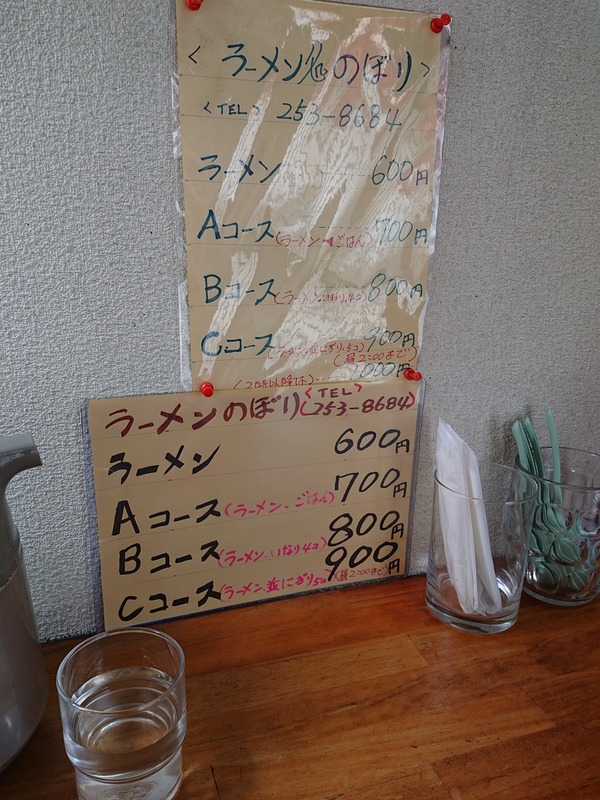 <ラーメン処のぼり>
<TEL> 253-8684
ラーメン 600円
Aコース(ラーメン、ごはん)700円
Bコース(ラーメン、いなり4コ)800円
Cコース(ラーメン、並にぎり5コ)900円
(昼2:00まで)
(2時以降は)---1000円
ラーメンのぼり<TEL>(253-8684)
ラーメン 600円
Aコース(ラーメン、ごはん)700円
Bコース(ラーメン、いなり4コ)800円
Cコース(ラーメン、並にぎり5コ)900円(昼2:00まで)